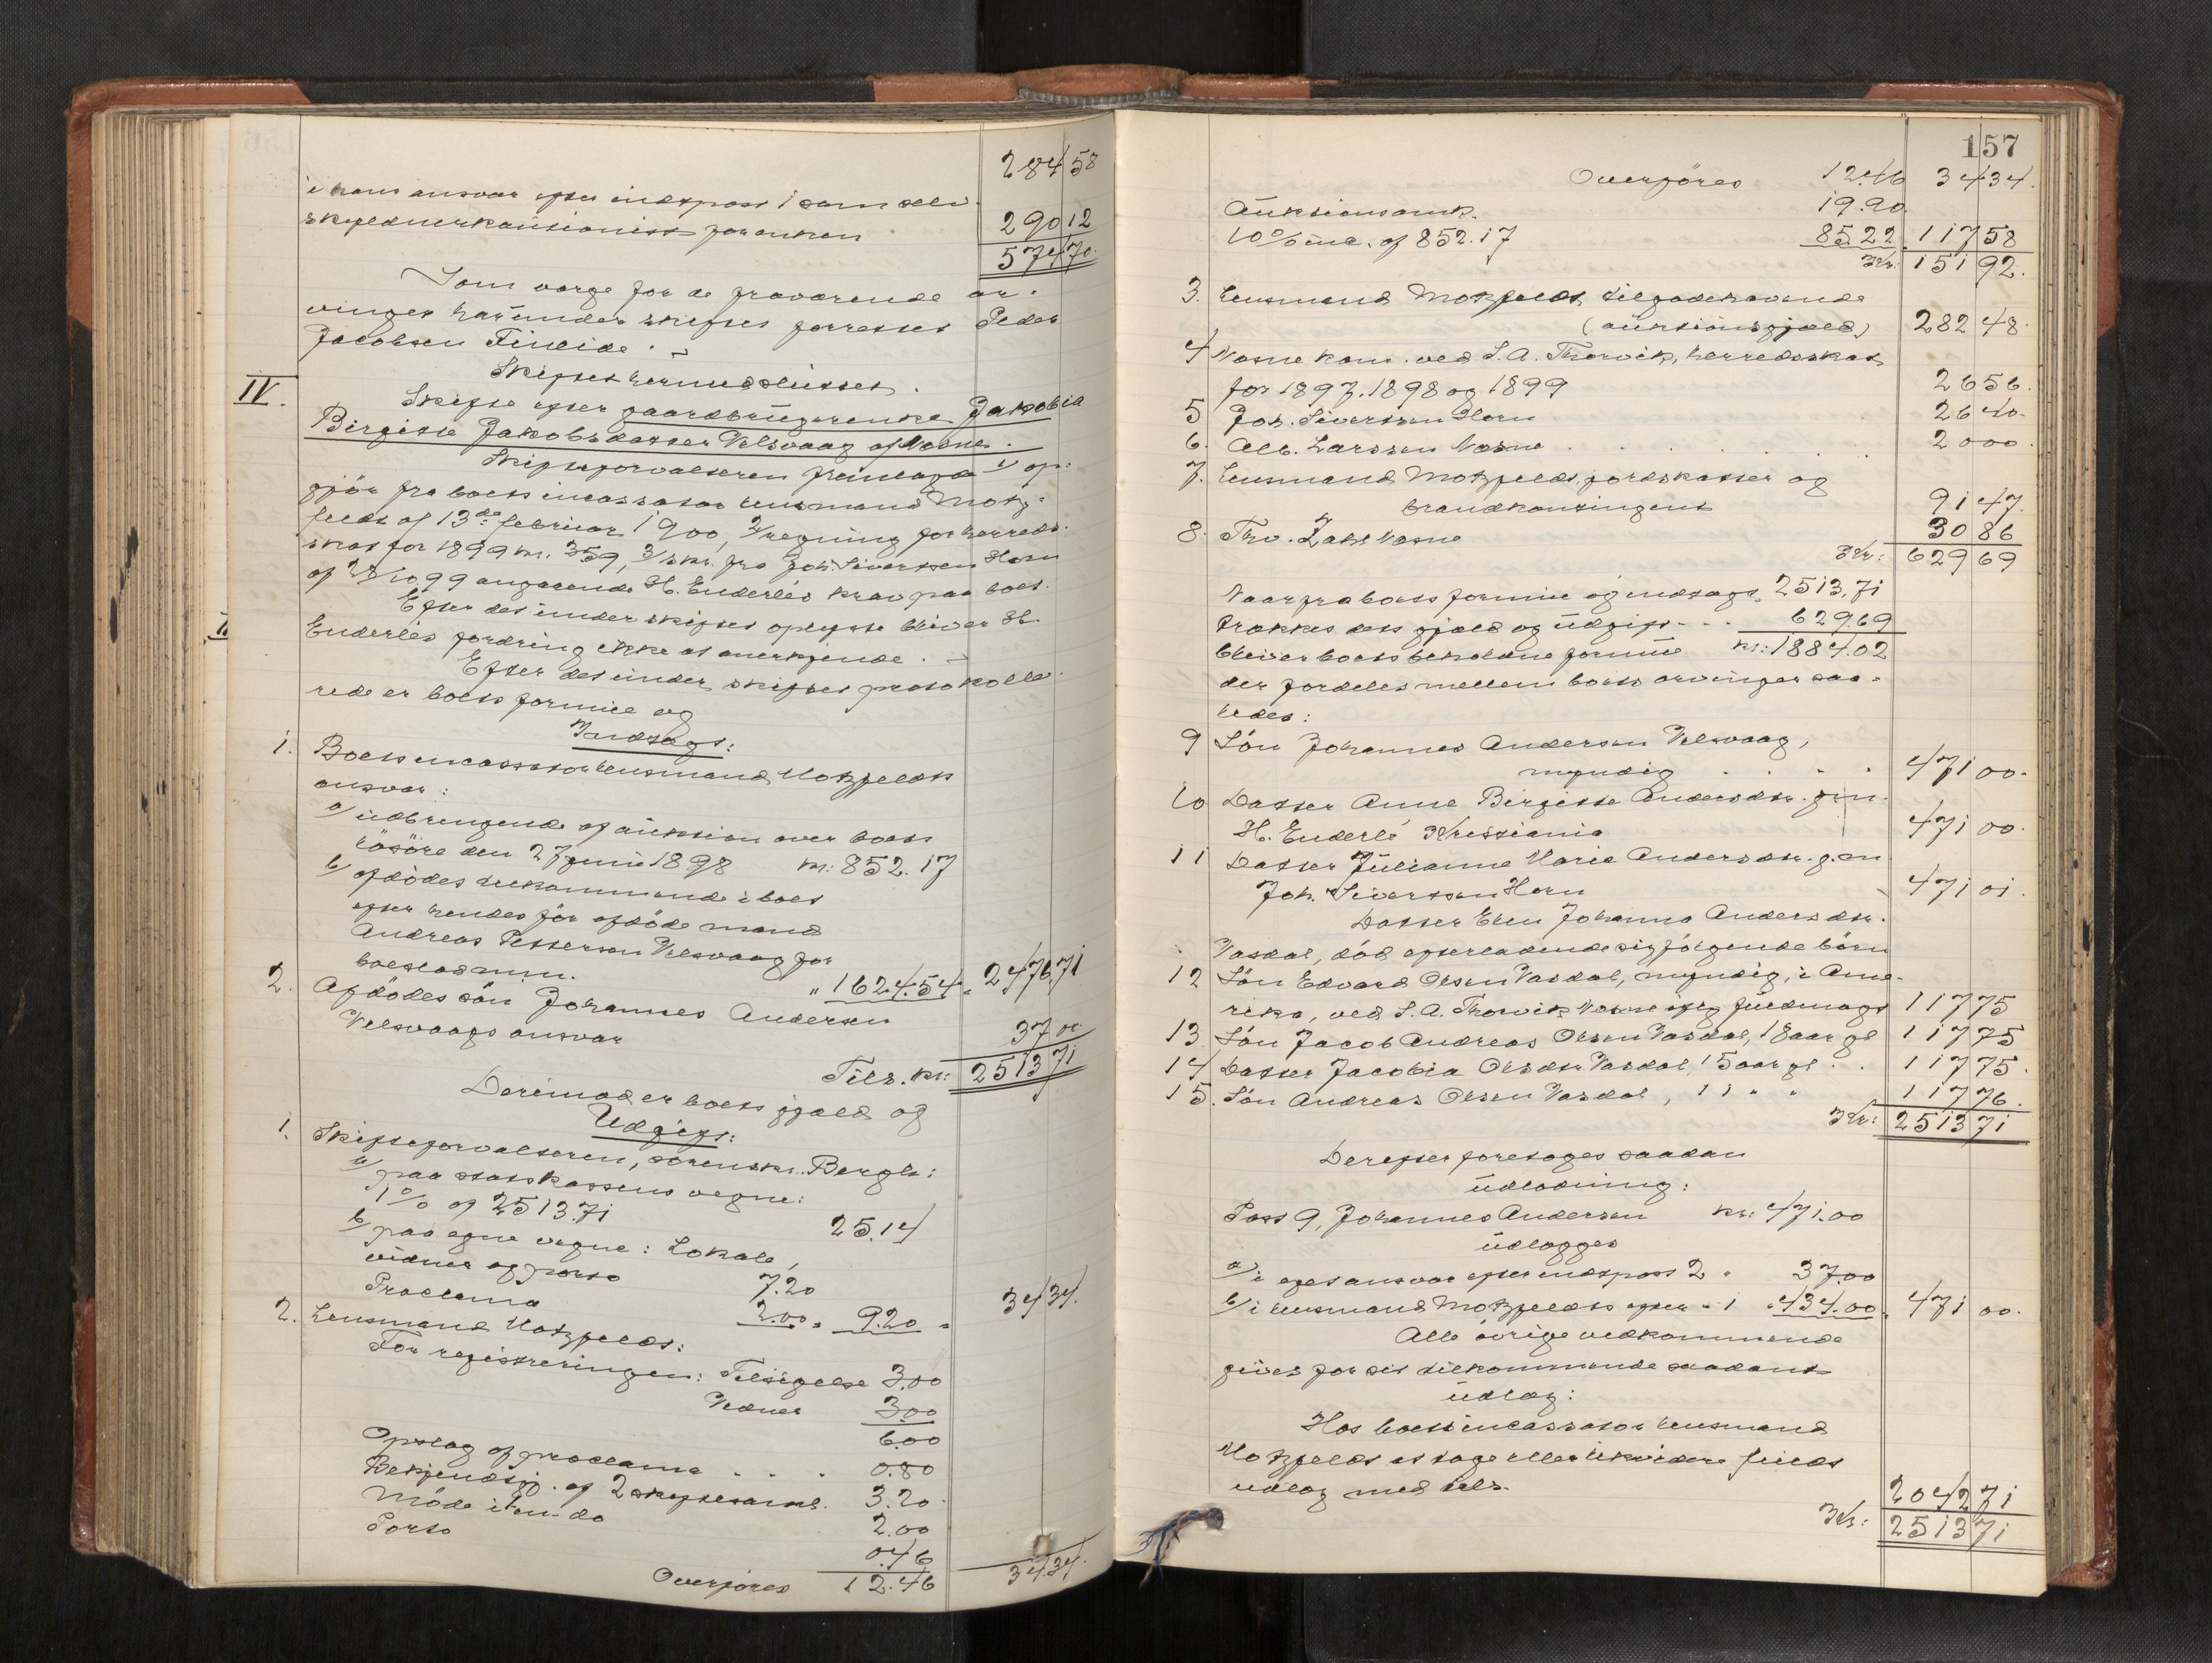 284 58
i hans ansvar efter indtpost 1 som selv-
skyldnerkautionist for enken 290 12
574 70.
Som værge for de fraværende ar-
vinger harunder skiftet forrettet Peder
Jacobsen Finvide.
Skiftet hermed sluttet.
IV. Skifte efter gaardbrugerenke Jakobia
Birgitte Jakobsdatter Velsvaag af Nesne.
Skifteforvalteren fremlagde 1/ op-
gjør fra boets incassator lensmand Motz-
feldt af 13de februar 1900, 2/ regning for herreds-
skat for 1899 kr. 3.59, 3/ skr. fra Joh. Sivertsen Horn
af 23/10.99 angaaende H. Enderlès krav paa boet.
Efter det under skiftet oplyste bliver H.
Enderlès fordring ikke at anerkjende.
Efter det under skiftet protokolle-
rede er boets formue og
Indtægt:
1. Boets incassator lensmand Motzfeldts
ansvar:
a/ udbringende af auktion over boets
løsøre den 27 juni 1898 kr: 852.17
b/ afdødes tilkommende i boet
efter hendes før afdøde mand
Andreas Pettersen Velsvaag for
boeslodmin. " 1624.54 = 2476,71
2. Afdødes søn Johannes Andersen
Velsvaags ansvar 37 00
Tils. kr: 2513 71
Derimod er boets gjæld og
Udgift:
1. Skifteforvalteren, sorenskr. Bergh:
a/ paa statskassens vegne:
1 % af 2513.71 25.14
b/ paa egne vegne: Lokale,
vidner og porto 7.20
Proclama 2.00 = 9.20 = 34 34.
2. Lensmand Motzfeldt:
For registreringen: Tilsigelse 3.00
Vidner 3.00
6.00
Opslag af proclama . . . 0.80
Bekjendtgj. af 2 skiftesaml. 3.20
Møde i en do 2.00
Porto 0.46
Overføres 12.46 34.34.
157
Overføres 12.46 34 34.
Auktionsomk. 19.90
10 % ink. af 852.17 85 22 117 58
Kr: 151 92.
3. Lensmand Motzfeldts tilgodehavende
(auktionsgjæld) 282 48.
4 Nesne kom. ved S. A. Thorvik, herredsskat
for 1897. 1898 og 1899 26 56.
5 Joh. Sivertsen Horn 26 40.
6. Alb. Larssen Nesne . . . . . . 20 00.
7. Lensmand Motzfeldt, jordskatter og
brandkontingent 91 47.
8. Thv. Zahl Nesne 30 86
Kr: 629 69
Naar fra boets formue og indtægt 2513,71
trækkes dets gjæld og udgift - - - 629.69
bliver boets beholdne formue kr: 1884.02
der fordeles mellem boets arvinger saa-
ledes:
9 Søn Johannes Andersen Velsvaag,
myndig . . . . 471 00.
10 Datter Anne Birgitte Andersdtr. g.m.
H. Enderlè Kristiania 471 00.
11 Datter Julianne Marie Andersdtr. g.m.
Joh. Sivertsen Horn 471 01.
Datter Elen Johanna Andersdtr.
Vasdal, død efterladende sig følgende børn
12 Søn Edvard Olsen Vasdal, myndig, i Ame-
rika, ved S. A. Thorvik Nesne iflg fuldmagt 117 75
13. Søn Jacob Andreas Olsen Vasdal, 18 aar gl 117 75
14 Datter Jacobia Olsdtr Vasdal, 15 aar gl . . 117 75.
15. Søn Andreas Olsen Vasdal, 11 " " 117 76.
Kr: 2513 71
Derefter foretages saadan
udlodning:
Post 9, Johannes Andersen kr: 471.00
udlægges
a/ i eget ansvar efter indtpost 2 " 37.00
b/ i lensmand Motzfeldts efter " 1 " 434.00 = 471 00.
Alle øvrige vedkommende
gives for sit tilkommende saadant
udlæg:
Hos boets incassator lensmand
Motzfeldt at tage eller likvidere fuldt
udlæg med tils. 2042 71
Kr: 2513 71